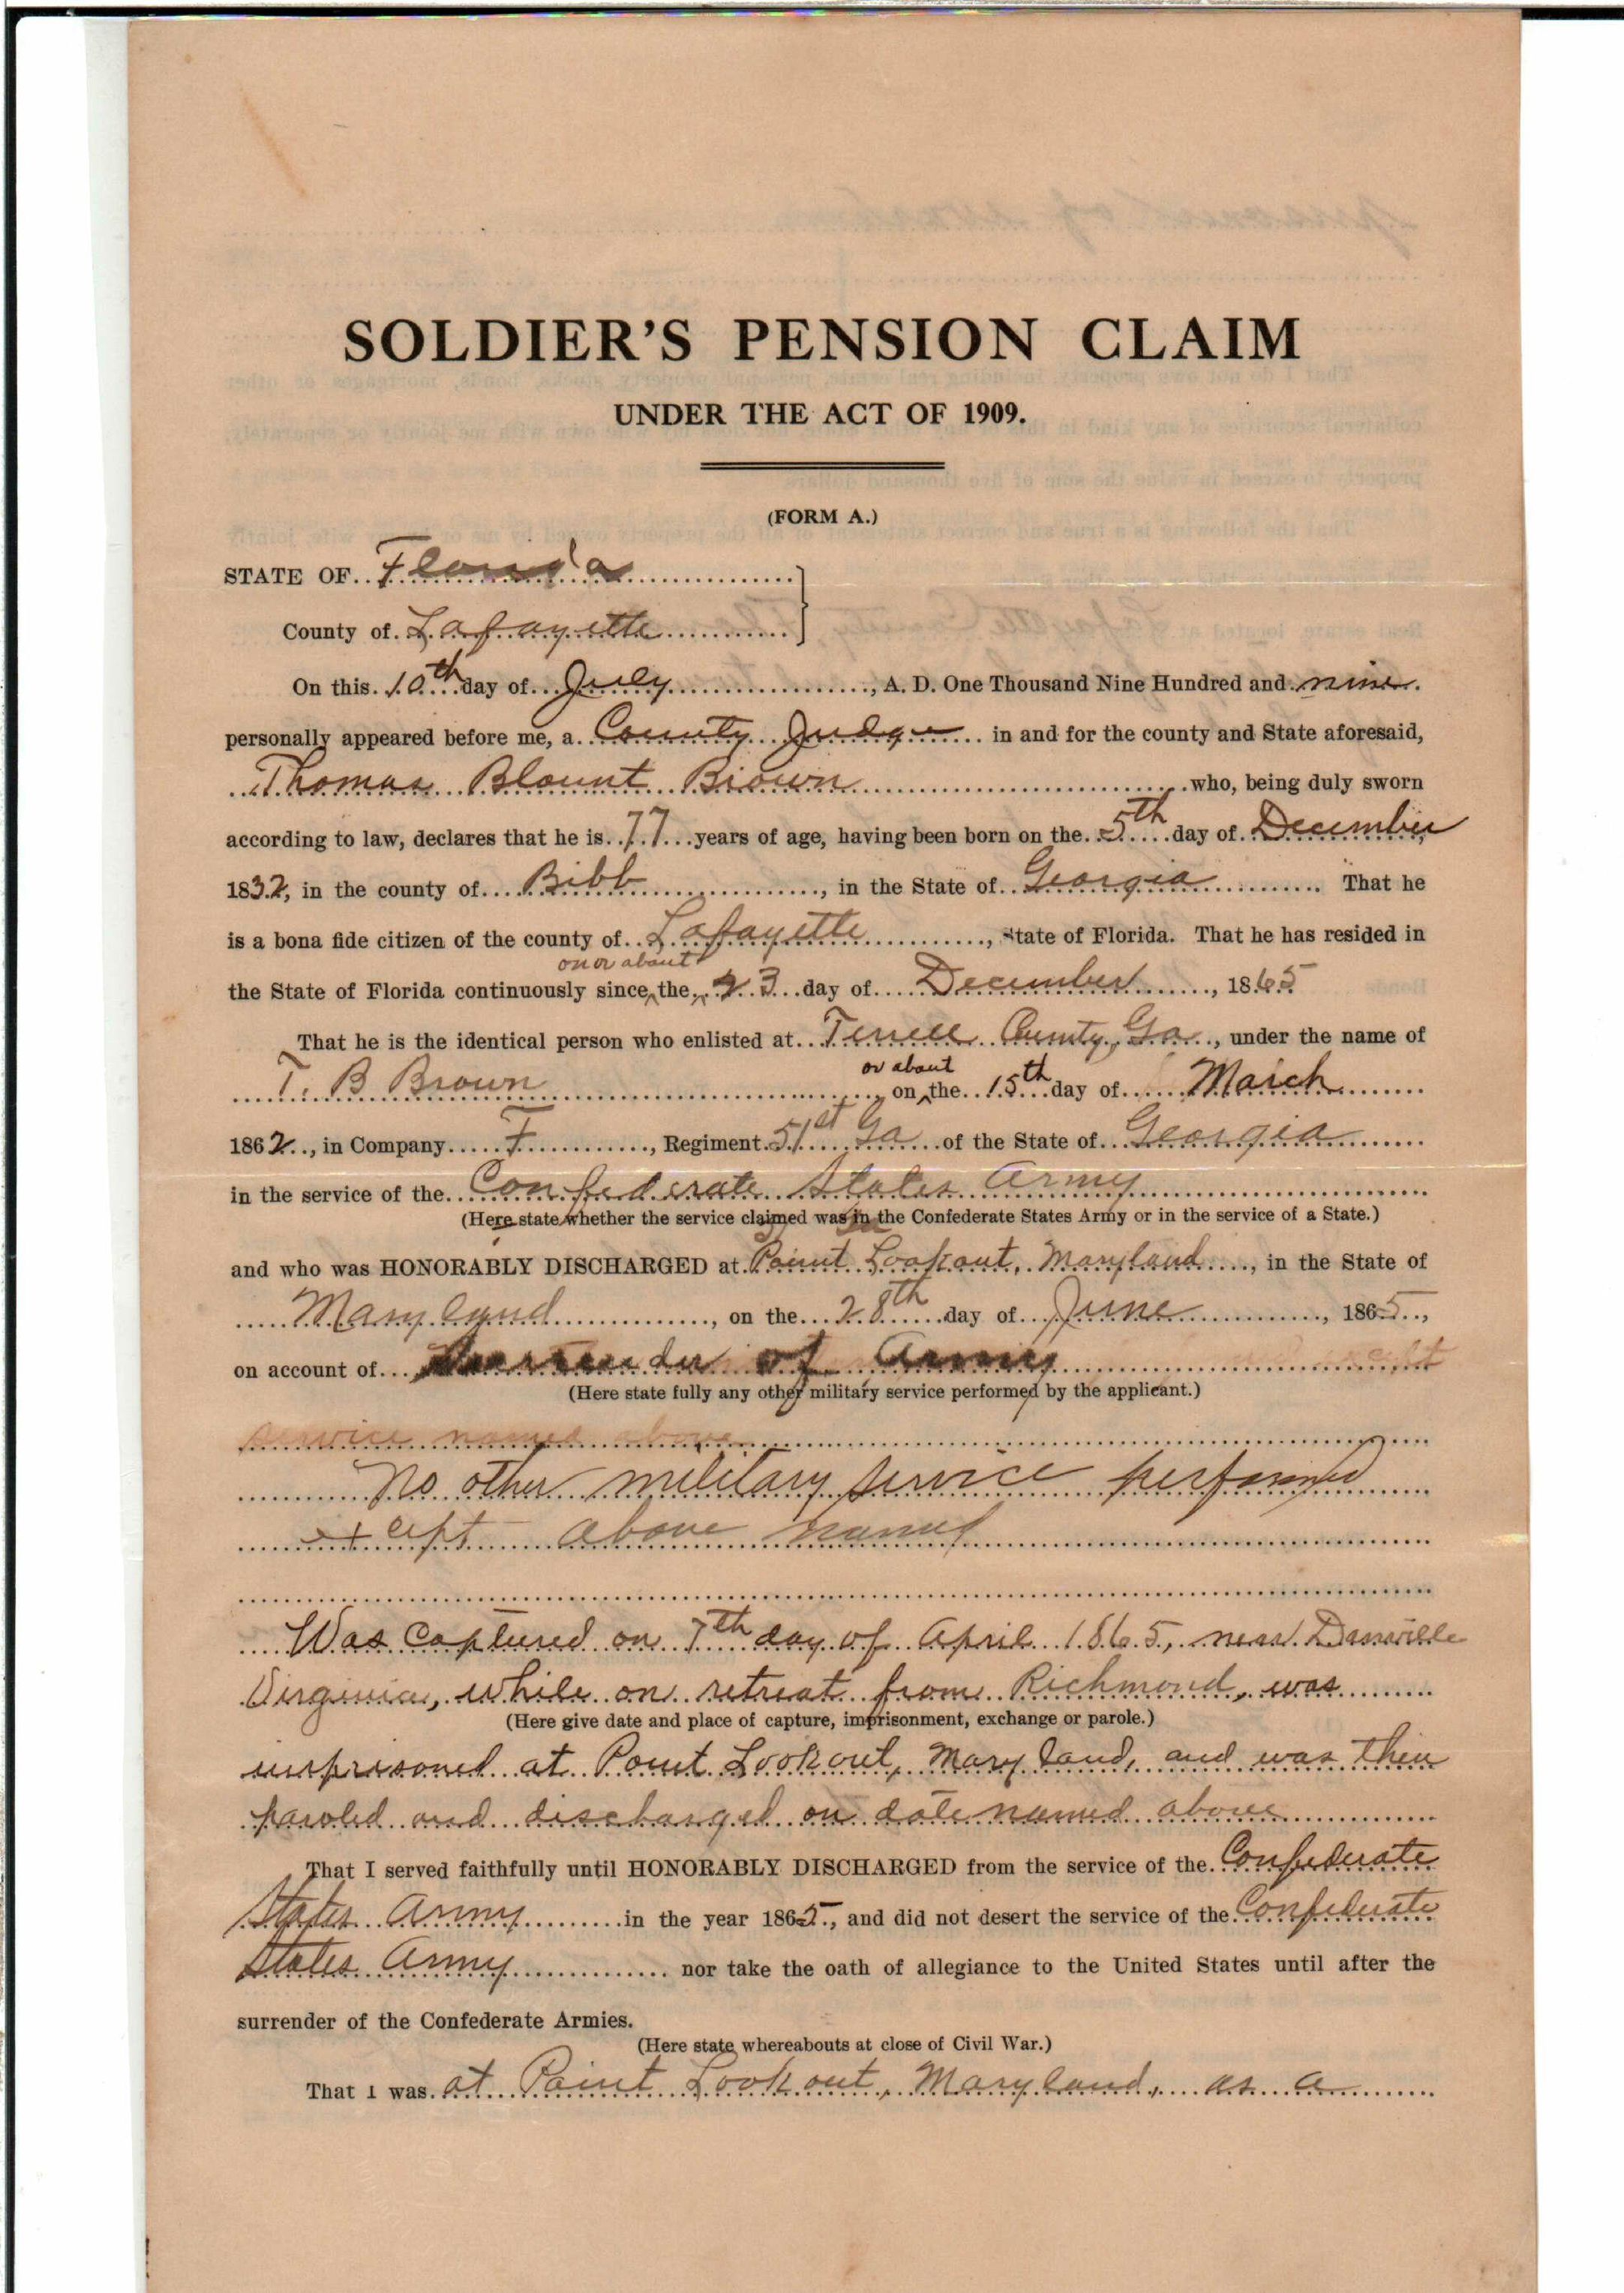 SOLDIER'S PENSION CLAIM
UNDER THE ACT OF 1909.
(FORM A.)
STATE OF Florida
County of Lafayette
On this 10th day of July, A. D. One Thousand Nine Hundred and nine.
personally appeared before me, a County Judge in and for the county and State aforesaid,
Thomas Blount Brown who, being duly sworn
according to law, declares that he is 77 years of age, having been born on the 5th day of December
1832, in the county of Bibb, in the State of Georgia. That he
is a bona fide citizen of the county of Lafayette, State of Florida. That he has resided in
on or about
the State of Florida continuously since the 23 day of December, 1865
That he is the identical person who enlisted at Terrell County, Ga., under the name of
or about
T. B Brown on the 15th day of March
1862, in Company F, Regiment 51st Ga of the State of Georgia
in the service of the Confederate States Army
(Here state whether the service claimed was in the Confederate States Army or in the service of a State.)
and who was HONORABLY DISCHARGED at Point Lookout, Maryland, in the State of
Maryland, on the 28th day of June, 1865,
on account of Surrender of Army
(Here state fully any other military service performed by the applicant.)
service named above
No other military service performed
except above named
Was captured on 7th day of April 1865, near Danville
Virginia, while on retreat from Richmond, was
(Here give date and place of capture, imprisonment, exchange or parole.)
imprisoned at Point Lookout, Maryland, and was then
paroled and discharged on date named above
That I served faithfully until HONORABLY DISCHARGED from the service of the Confederate
States Army in the year 1865, and did not desert the service of the Confederate
States Army nor take the oath of allegiance to the United States until after the
surrender of the Confederate Armies.
(Here state whereabouts at close of Civil War.)
That I was at Point Lookout, Maryland, as a